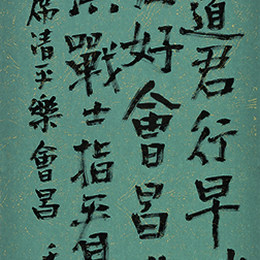 道君行早
好會昌
戰士指
席清平樂會昌